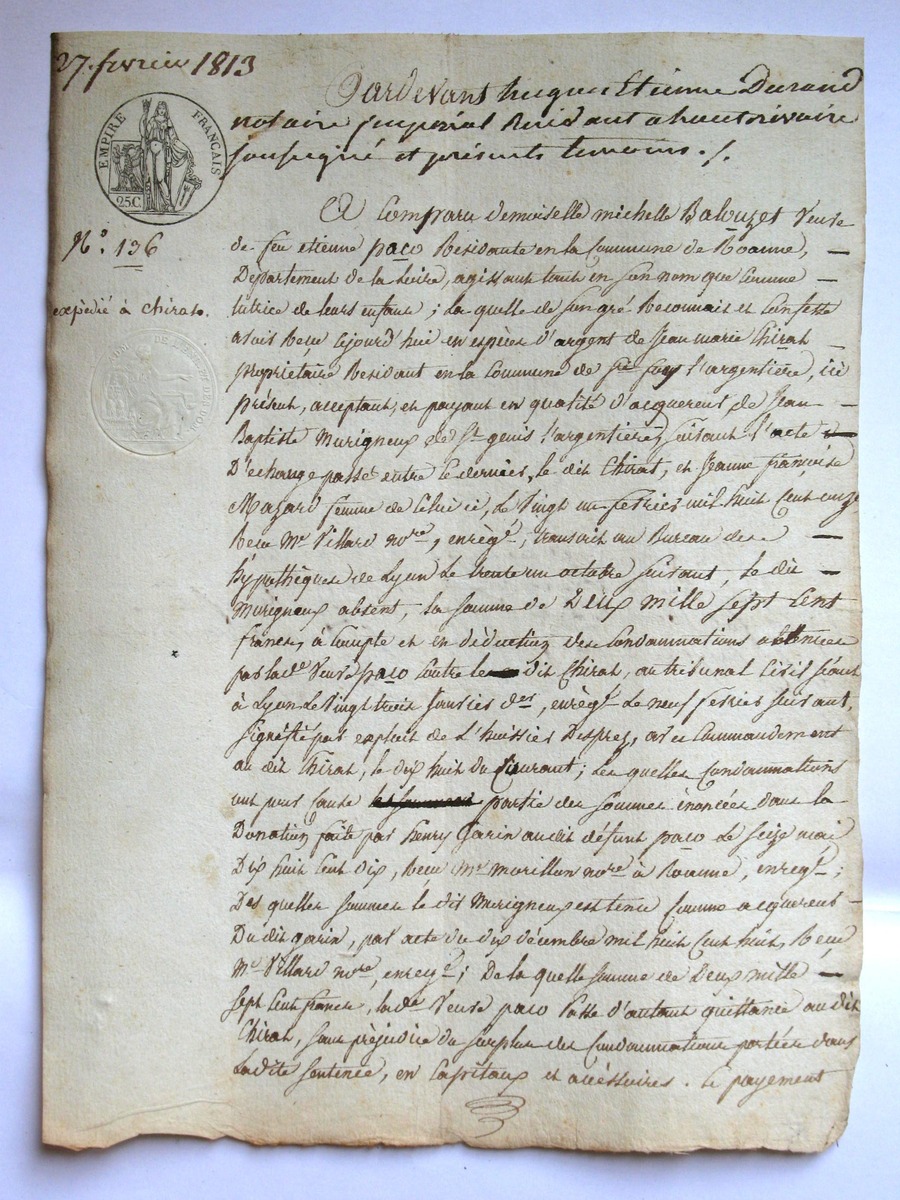 27. fevrier 1813
EMPIRE FRANÇAIS
25C
N.o 136
expédié à chirat.
DE L'ENREG.T ET DES DOM.
Pardevant hugues Etienne Durand
notaire imperial Residant a hauterivoire
soussigné et présents temoins ./.
A Comparu demoiselle michelle Balouzet veuve
de feu etienne paco Residante en la Commune de Roanne, —
Departement de la Loire, agissant tant en son nom que Comme
tutrice de leurs enfans ; la quelle de son gré Reconnait et Confesse
avoir Reçu cejourd'hui en espèces d'argent de Jean marie Chirat
propriétaire Residant en la Commune de Ste foy l'argentière, ici
présent, acceptant, et payant en qualité d'acquereur de Jean —
Baptiste Murigneux de St genis l'argentiere, suivant l'acte
D'échange passé entre ce dernier, le dit Chirat, et Jeanne françoise
Mazard femme de Celui ci, le vingt un fevrier mil huit Cent onze
Reçu Me Villard nore, enrégé, transcrit au Bureau des —
hypothèques de Lyon le trente un octobre suivant, le dit —
Murigneux absent, la somme de Deux mille sept Cent
francs, à Compte et en déduction des Condamnations obtenues
par lade veuve paco Contre le dit Chirat, au tribunal Civil séant
à Lyon le vingt trois Janvier der, enrégé le neuf fevrier suivant,
signifié par exploit de L'huissier Desprez, avec Commandement
au dit Chirat, le dix huit du Courant ; Les quelles Condamnations
ont pour Cause partie des sommes énoncées dans la
Donation faite par henry Garin audit défunt paco le seize mai
Dix huit Cent dix, Reçu Me morillon nore à Roanne, enregé ;
Des quelles sommes le dit Murigneux est tenu Comme acquereur
Du dit garin, par acte du dix décembre mil huit Cent huit, Reçu
Me Villard nore, enregé ; De la quelle somme de Deux mille —
sept Cent francs, lade veuve paco Passe d'autant quittance au dit
Chirat, sans préjudice du surplus des Condamnations portées dans
Ladite sentence, en Capitaux et accéssoires . Le payement